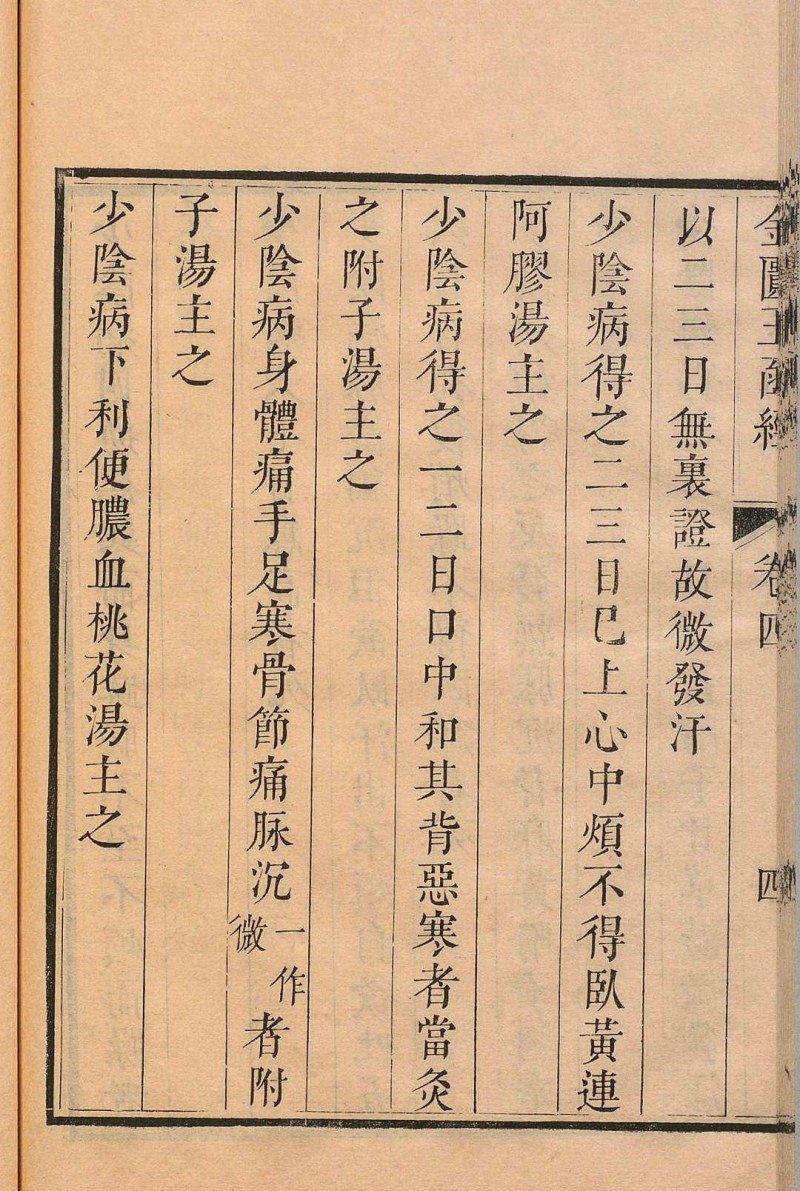 金匱玉函經 卷四 四
以二三日無裏證故微發汗
少陰病得之二三日已上心中煩不得臥黃連
阿膠湯主之
少陰病得之一二日口中和其背惡寒者當灸
之附子湯主之
少陰病身體痛手足寒骨節痛脉沉一作微者附
子湯主之
少陰病下利便膿血桃花湯主之